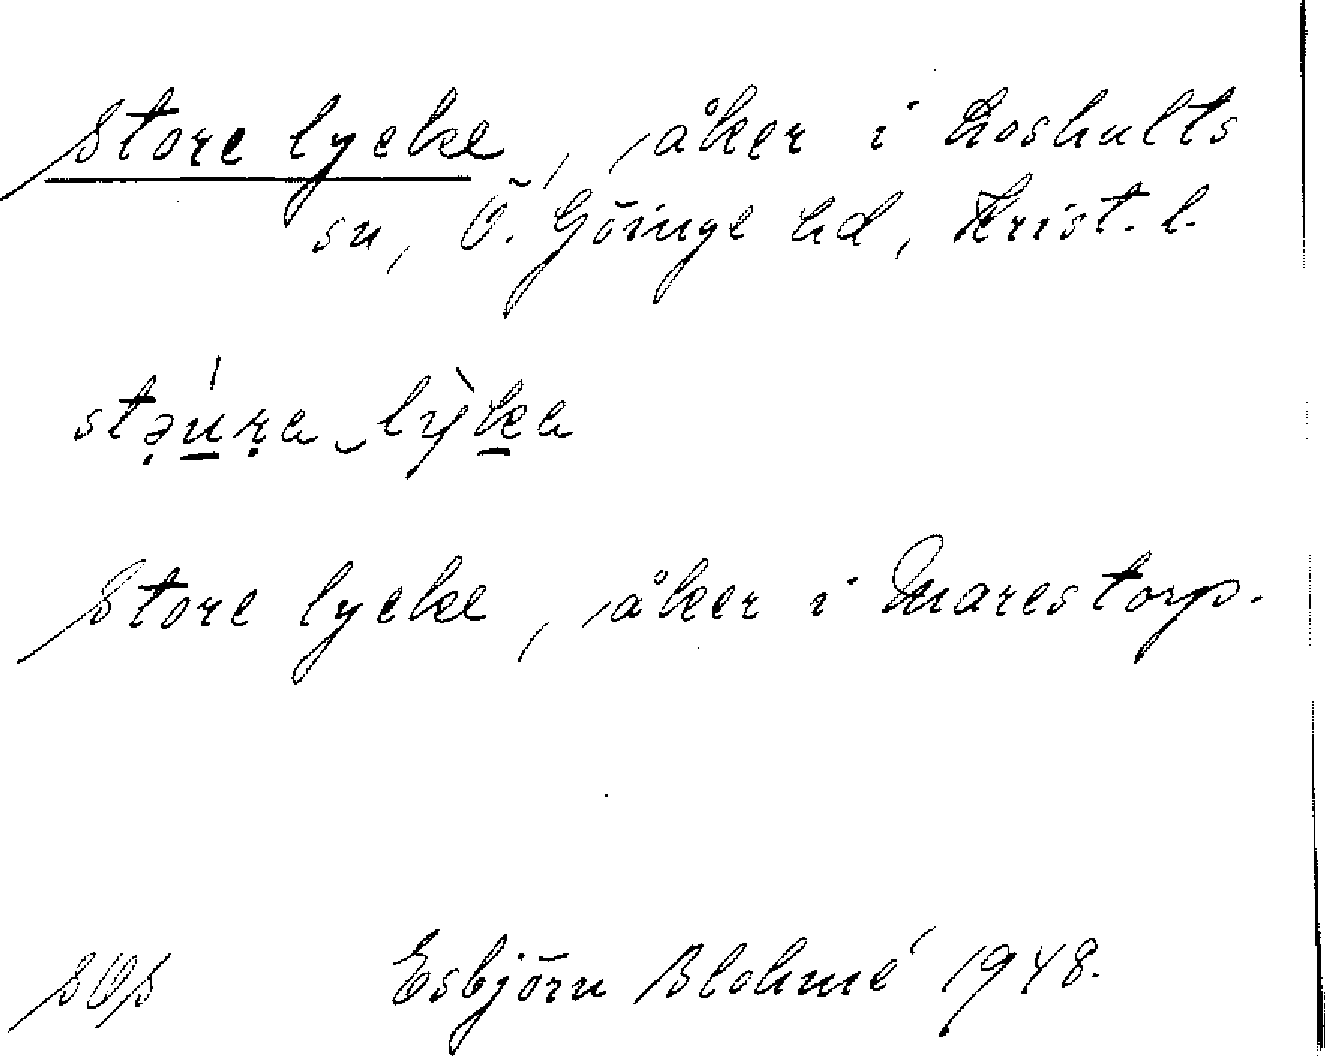 Store lycke, åker i Loshults
sn, Ö. Göinge hd, Krist. l.
stə̣́u̲ṛa ‿ lỳk̲a
Store lycke, åker i Marestorp.
Esbjörn Blohmé 1948.